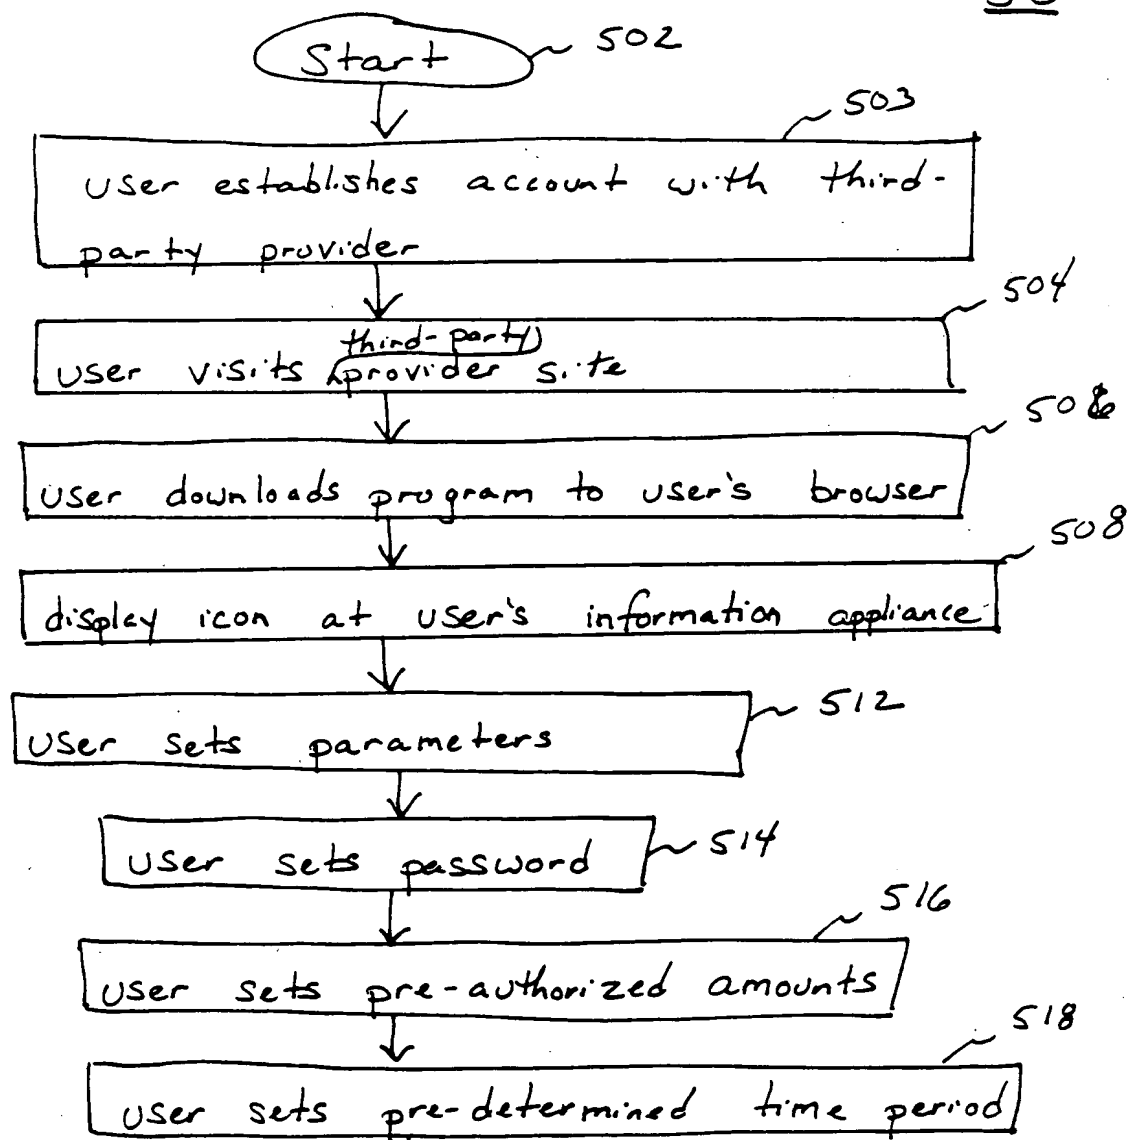 Start
502
503
user establishes account with third-
party provider
504
third-party
user visits provider site
506
user downloads program to user's browser
508
display icon at user's information appliance
512
user sets parameters
514
user sets password
516
user sets pre-authorized amounts
518
user sets pre-determined time period